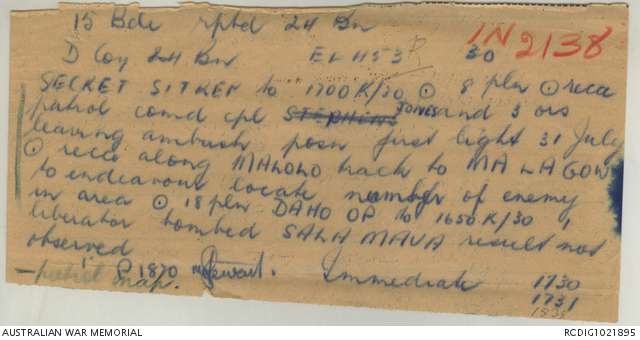 15 Bde rptd 24 Bn
IN 2138
D Coy 24 Bn 30
SECRET SITREP to 1700K/30 ⊙ 8 pln ⊙ recce
patrol comd cpl STEPHENS JONES and 3 ors
leaving ambush posn first light 31 July
⊙ recce along MALOLO track to MALAGOW
to endeavour locate number of enemy
in area ⊙ 18 pln DAHO OP to 1650K/30 1
liberator bombed SALAMAUA result not
observed
1870 Stewart. Immediate 1730
map. 1731
AUSTRALIAN WAR MEMORIAL RCDIG1021895